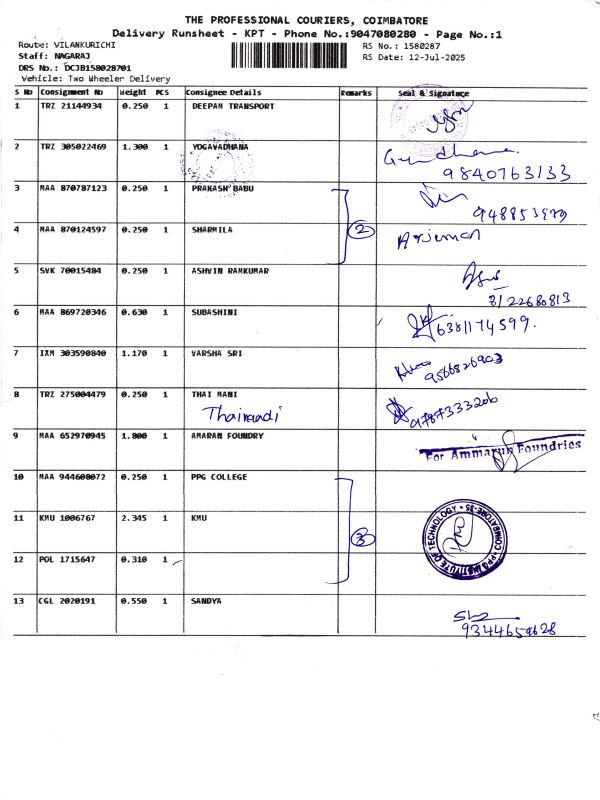 THE PROFESSIONAL COURIERS, COIMBATORE
Delivery Runsheet - KPT - Phone No.:9047080280 - Page No.:1
Route: VILANKURICHI RS No.: 1580287
Staff: NAGARAJ RS Date: 12-Jul-2025
DRS No.: DCJB158028701
Vehicle: Two Wheeler Delivery
S No Consignment No Weight PCS Consignee Details Remarks Seal & Signature
1 TRZ 21144934 0.250 1 DEEPAN TRANSPORT
2 TRZ 305022469 1.300 1 YOGAVADHANA
9840763133
3 MAA 870787123 0.250 1 PRAKASH BABU
4 MAA 870124597 0.250 1 SHARMILA 2
5 SVK 70015484 0.250 1 ASHVIN RAMKUMAR
8122680813
6 MAA 869720346 0.630 1 SUBASHINI 6381174599.
7 IXM 303590840 1.170 1 VARSHA SRI
9566826903
8 TRZ 275004479 0.250 1 THAI MANI
9787333206
9 MAA 652970945 1.800 1 AMARAN FOUNDRY
For Ammarun Foundries
10 MAA 944608072 0.250 1 PPG COLLEGE
11 KMU 1006767 2.345 1 KMU 3
PPG INSTITUTE OF TECHNOLOGY COIMBATORE-35
12 POL 1715647 0.310 1
13 CGL 2020191 0.550 1 SANDYA
9344659628